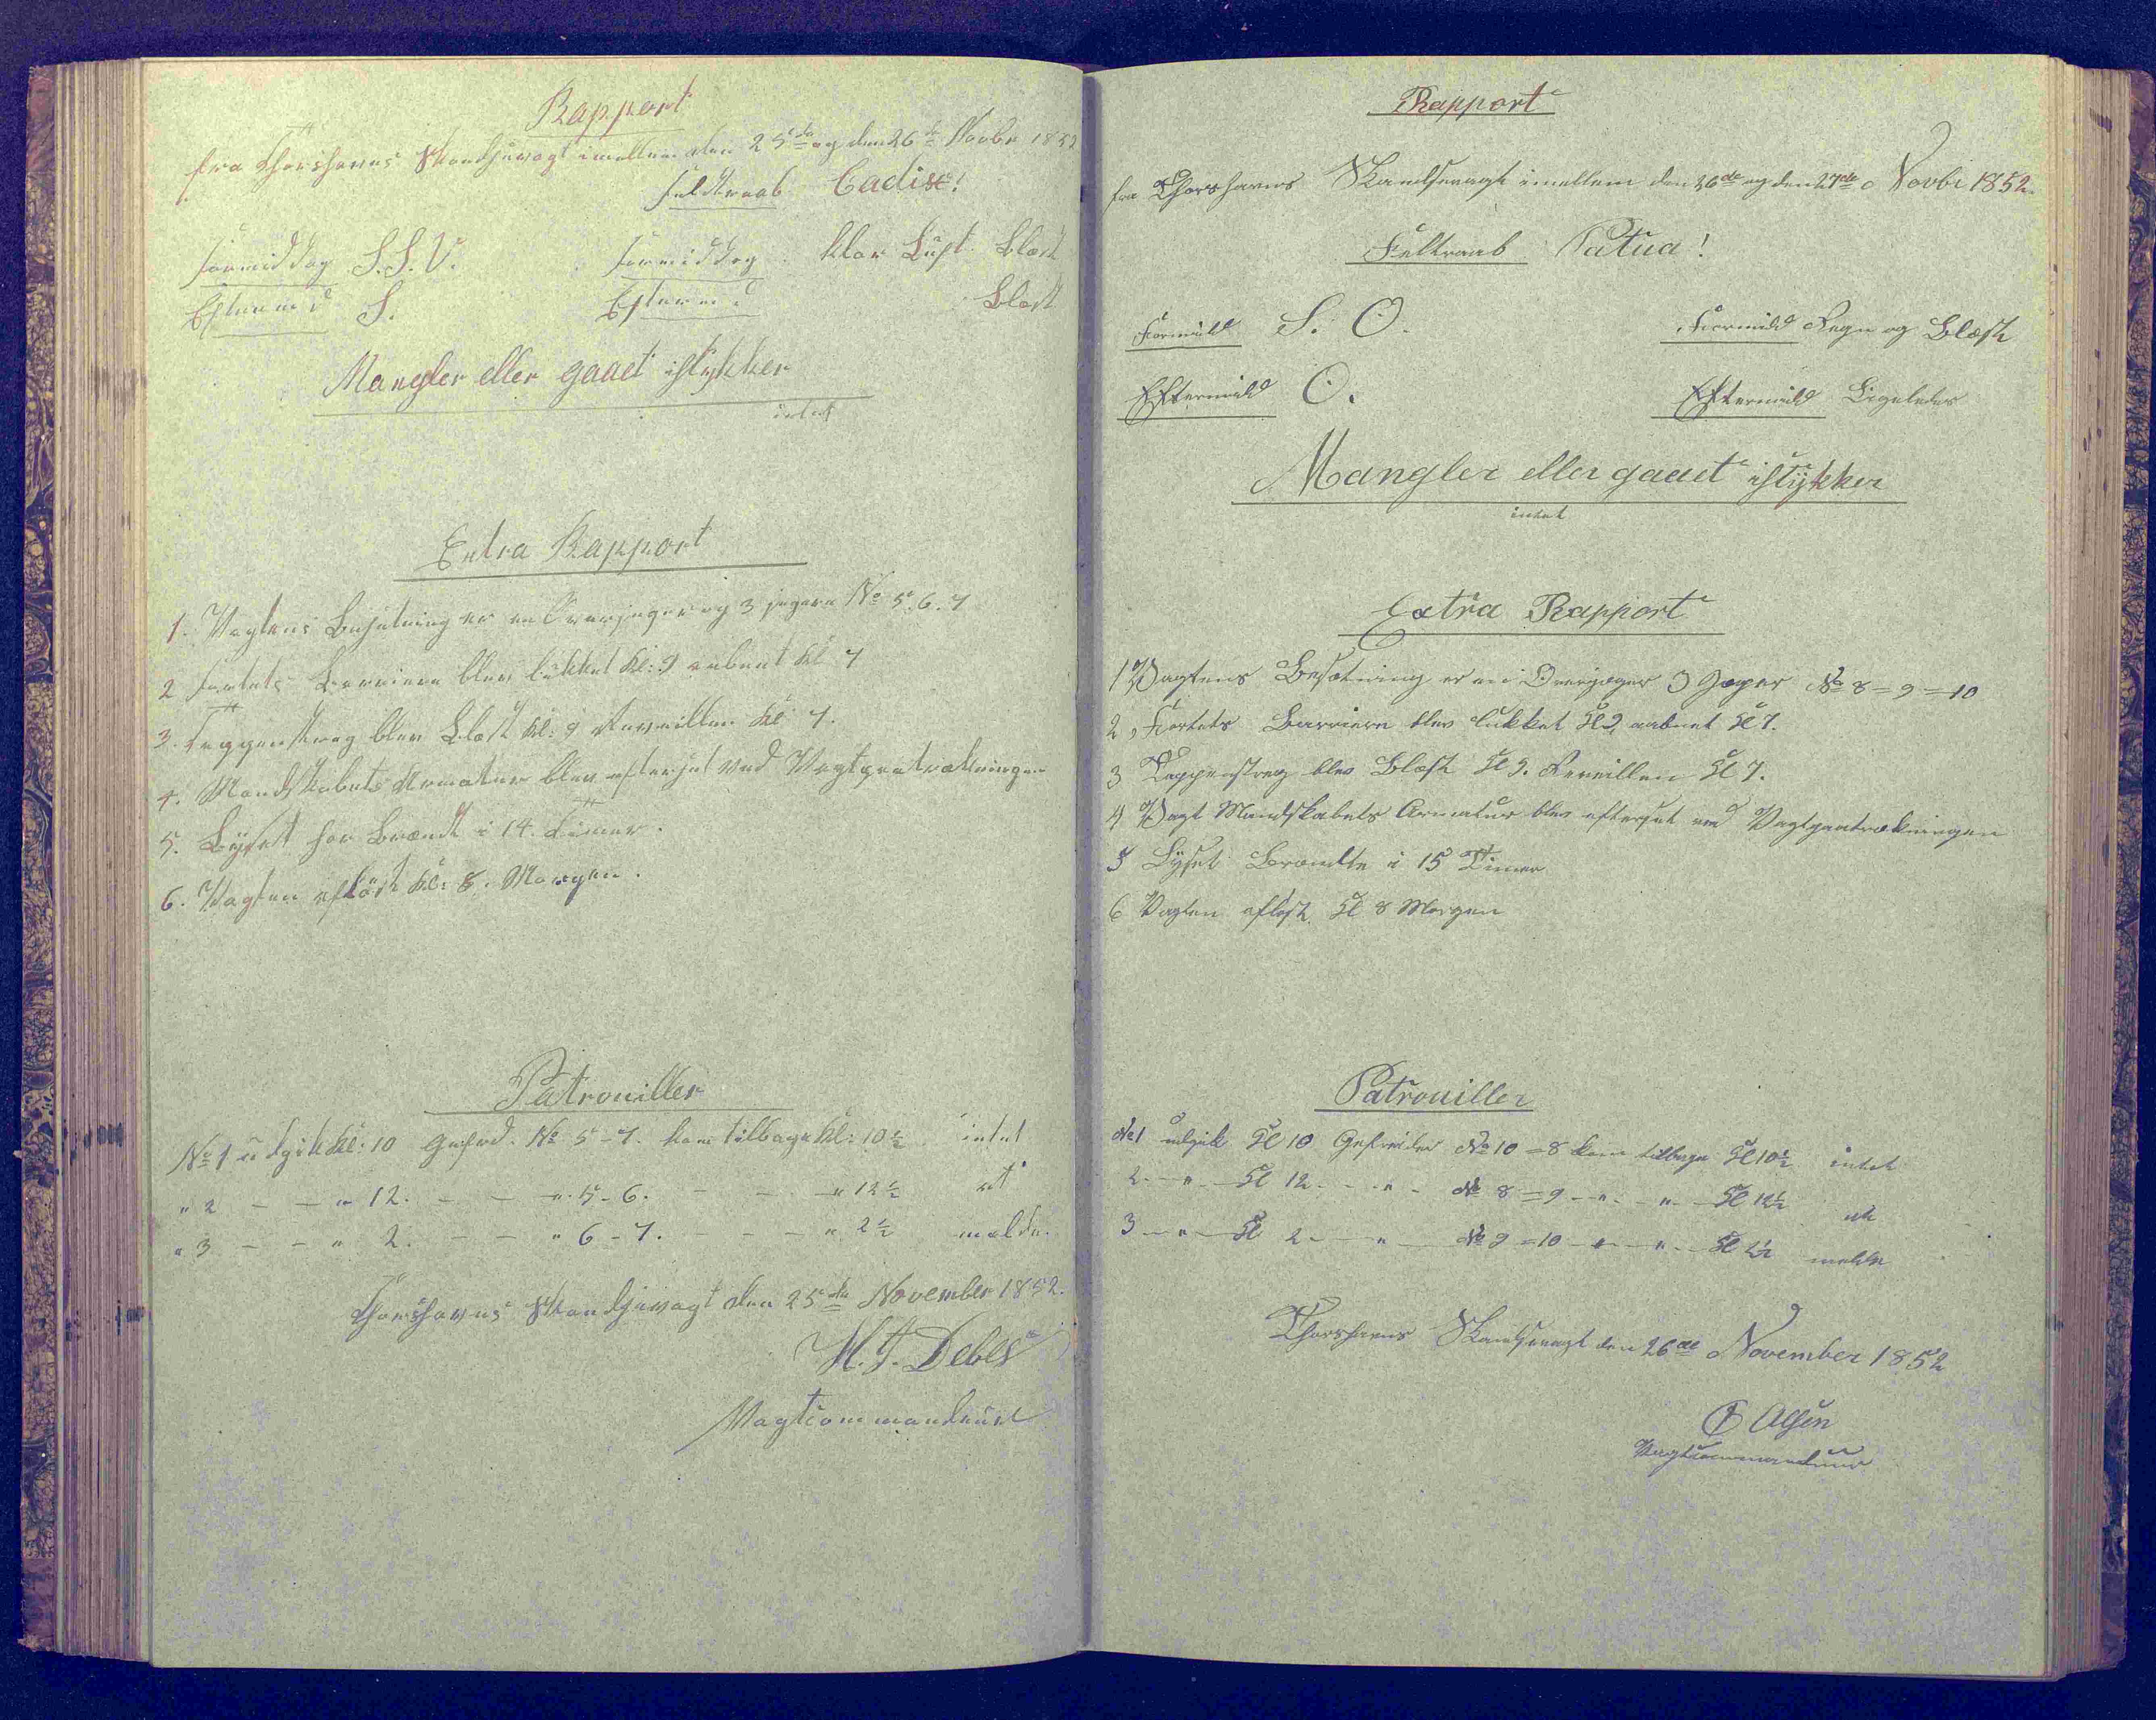 Rapport
fra Thorshavns Skandsevagt imellem den 25de og den 26de Novbr 1852
Feldtraab Cadix!
Formiddag S.S.V. Formiddag klar Luft Blæst
Efterm d S. Efterm d Blæst
Mangler eller gaaet istykker
intet
Extra Rapport
1. Vagtens Besætning er en Overjæger og 3 jægere No 5. 6. 7
2 Fortets Barriere blev lukket kl: 9 aabnet kl 7
3. Tappenstreg blev Blæst kl: 9 Reveillen kl 7.
4. Mandskabets Armatur blev efterset ved Vagtparatrækningen
5. Lyset har Brændt i 14. Timer.
6. Vagten afløst kl: 8. Morgen.
Patrouiller
No 1 udgik kl: 10 Gefred. No 5-7. kom tilbage kl: 10½ intet
" 2 - - " 12. - - " 5-6. - - " 12½ at
" 3 - - " 2. - - " 6-7. - - - " 2½ melde.
Thorshavns Skandsevagt den 25de November 1852.
H. J. Debes
Vagtcommandeur
Rapport
fra Thorshavns Skandsevagt imellem den 26de og den 27de Novbr 1852.
Feltraab Patua!
Formidd S. O. Formidd Regn og Blæst
Eftermidd O. Eftermidd Ligeledes
Mangler eller gaaet istykker
intet
Extra Rapport
1 Vagtens Besætning er en Overjæger 3 Jæger No 8=9=10
2, Fortets Barriere blev lukket Kl 9 aabnet Kl 7.
3 Tappenstreg blev Blæst Kl 9. Reveillen Kl 7.
4 Vagt Mandskabets Armatur blev efterset ved Vagtparatrækningen
5 Lyset Brændte i 15 Timer
6 Vagten afløst Kl 8 Morgen
Patrouiller
No 1 udgik Kl 10 Gefreider No 10=8 kom tilbage Kl 10½ intet
2 - " - Kl 12 - " - No 8=9 - " - " - Kl 12½ at
3 - " - Kl 2 - " - No 9=10 - " - " - Kl 2½ melde
Thorshavns Skandsevagt den 26de November 1852
Olsen
Vagtcommandeur